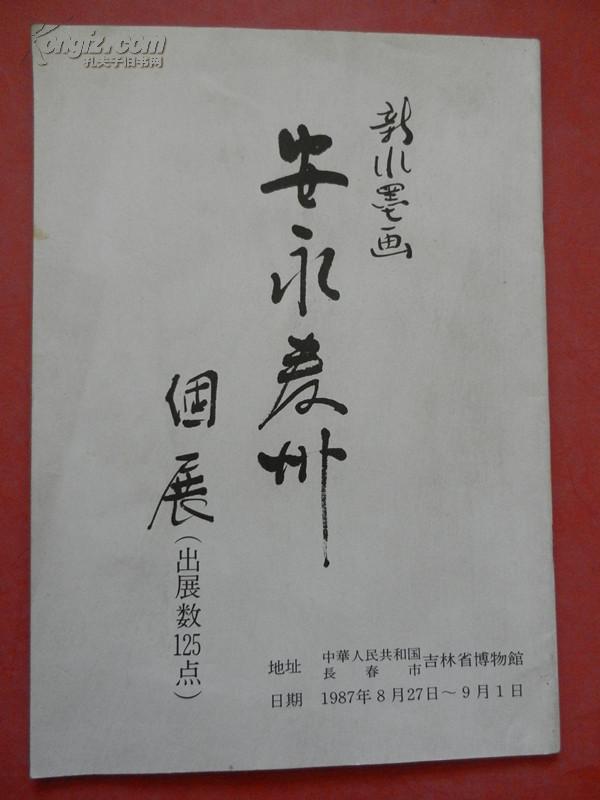 Kongfz.com
孔夫子旧书网
新水墨画
安永麦州
個展(出展数125点)
地址 中華人民共和国長春市吉林省博物館
日期 1987年8月27日～9月1日